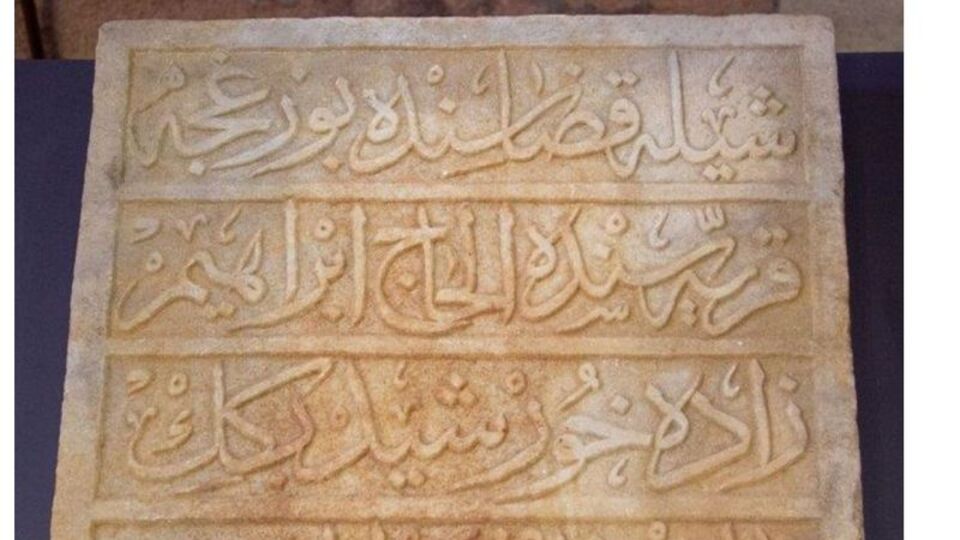 شيله قضاسنده بوزغجه
قريه سنده الحاج ابراهيم
زاده خورشيد بكك